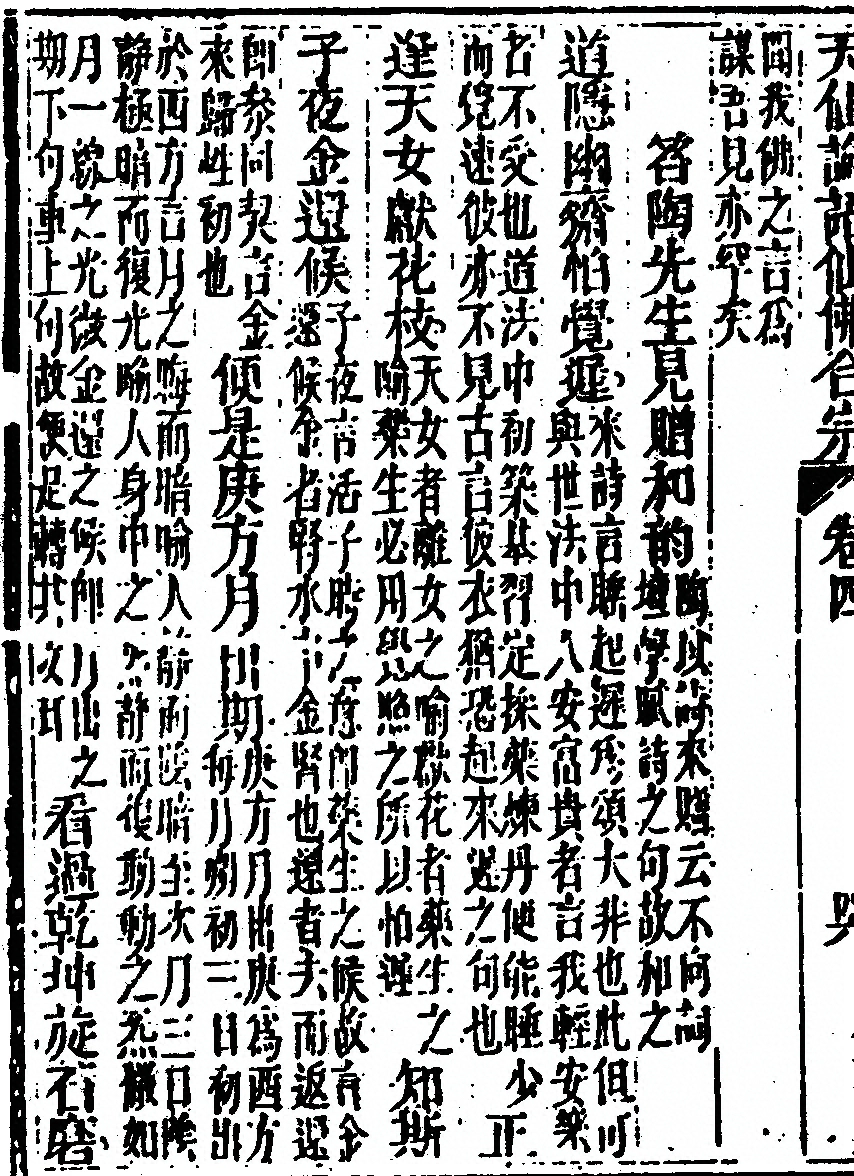 天仙論語仙佛合宗 卷四
聞我佛之言爲
謀吾見亦罕矣
答陶先生見贈和韵
陶以詩來贈云不向詞
壇學賦詩之句故和之
道隱幽齋怕覺遲
來詩言睡起遲爲頌大非也此但可
與世法中人安富貴者言我輕安樂
者不受也道法中初築基習定採藥煉丹便能睡少
而絕速彼亦不見古言彼衣猶恐起來遲之句也正
逢天女獻花枝
天女者離女之喻獻花者藥生之
喻藥生必用覺照之所以怕遲
知斯
子夜金還候
子夜言活子時之意卽藥生之候故言金
還候金者腎水言金腎也還者去而返還
卽叅同契言金
來歸性初也
便是庚方月出期
庚方月出庚爲西方
每月朔初三日初出
於西方言月之晦而暗喻人靜而暗至次月三日陰
靜極暗而復光喻人身中之炁靜而復動動之炁機如
月一線之光微金還之候卽月出之
期下句重上句故便是轉共文耳
看過乾坤旋石磨